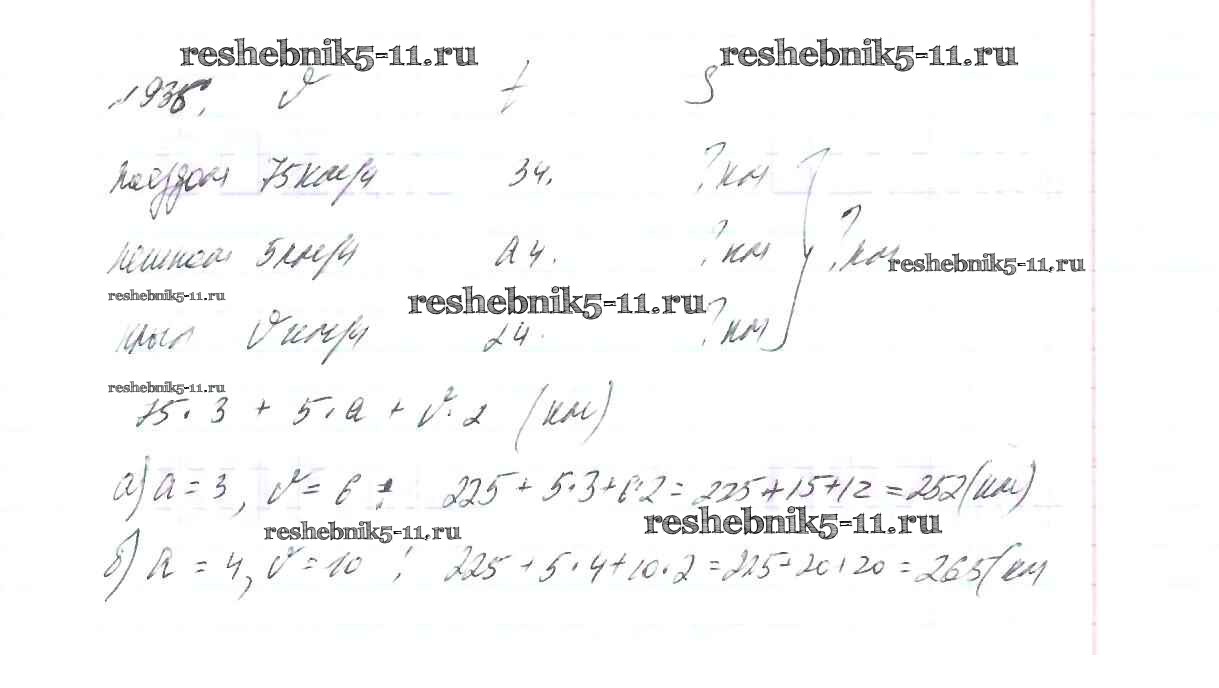 reshebnik5-11.ru reshebnik5-11.ru
v t S
поездом 75 км/ч 3 ч. ? км
пешком 5 км/ч a ч. ? км ? км
reshebnik5-11.ru
reshebnik5-11.ru reshebnik5-11.ru
v км/ч 2 ч. ? км
reshebnik5-11.ru
75 · 3 + 5 · a + v · 2 (км)
а) a = 3, v = 6 : 225 + 5 · 3 + 6 · 2 = 225 + 15 + 12 = 252 (км)
reshebnik5-11.ru reshebnik5-11.ru
б) a = 4, v = 10 : 225 + 5 · 4 + 10 · 2 = 225 + 20 + 20 = 265 (км